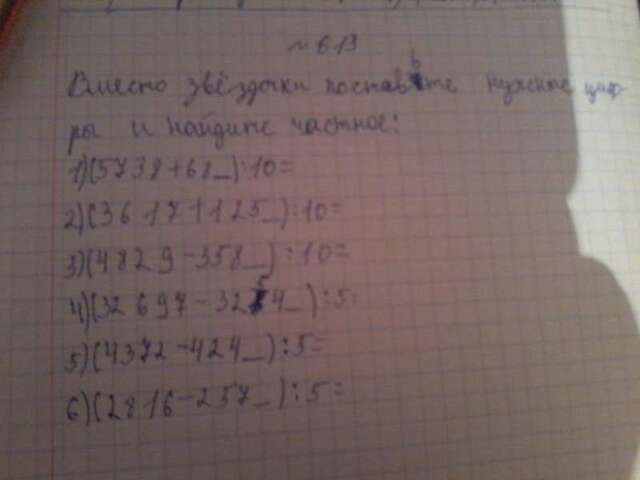 № 613
Вместо звёздочки поставьте нужные циф-
ры и найдите частное:
1)(5738+62_):10=
2)(3617+125_):10=
3)(4829-358_):10=
4)(32697-3254_):5=
5)(4372-424_):5=
6)(2816-257_):5=